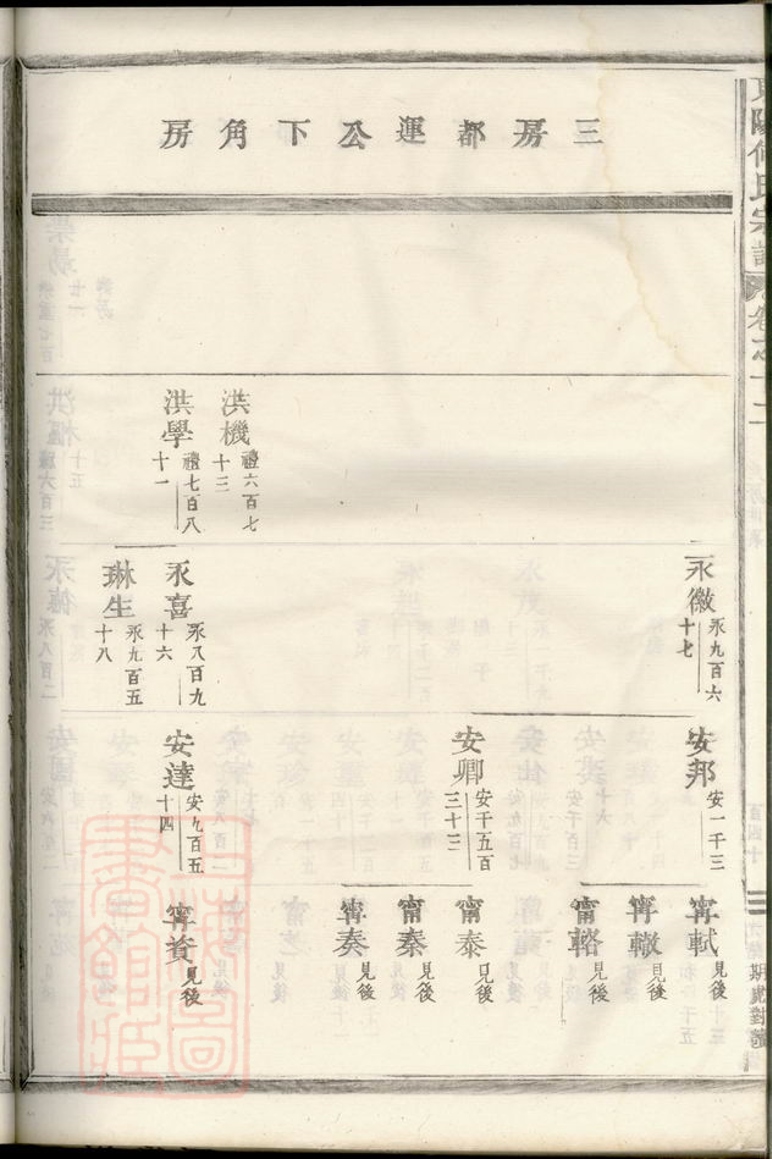 三房都運公下角房
洪機
禮六百七
十三
洪學
禮七百八
十一
永徽
永九百六
十七
永喜
永八百九
十六
琳生
永九百五
十八
安邦
安一千三
安卿
安千五百
三十三
安達
安九百五
十四
甯軾
見後
甯轍
見後
甯輅
見後
甯泰
見後
甯秦
見後
甯奏
見後
甯資
見後